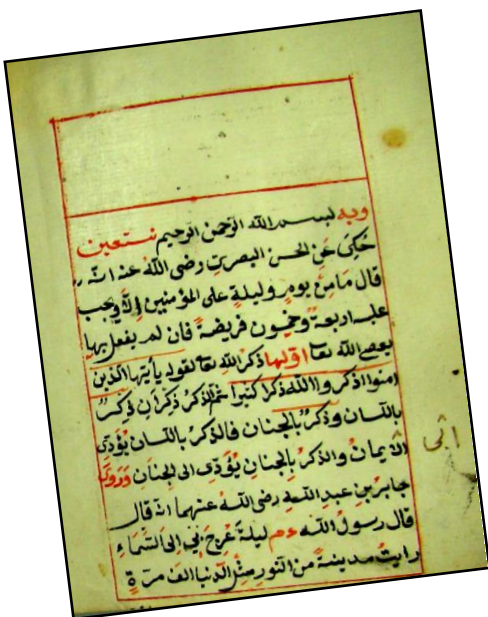 وبه بسم الله الرحمن الرحيم نستعين
حكى عن الحسن البصرى رضى الله عنه انه
قال ما من يوم وليلة على المؤمنين الا وجب
عليه اربعة وخمسون فريضة فان لم يفعل بها
يعصى الله تعا اولها ذكر الله تعا لقوله يأيها الذين
امنوا اذكروا الله ذكرا كثيرا ثم الذكر ذكران ذكر
باللسان وذكر بالجنان فالذكر باللسان يؤدى
الايمان والذكر بالجنان يؤدى الى الجنان وروى
جابر بن عبد الله رضى الله عنهما انه قال
قال رسول الله دم ليلة عرج بى الى السماء
رايت مدينة من النور مثل الدنيا الف مرة